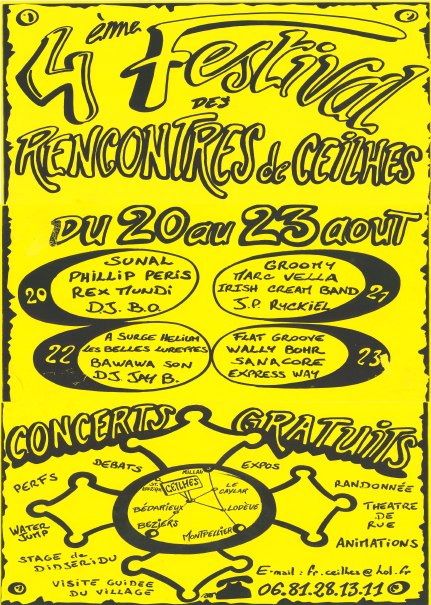 4ème Festival
DES
RENCONTRES de CEILHES
DU 20 au 23 août
20
SUNAL
PHILLIP PERIS
REX MUNDI
D.J. B.O.
GROOMY
MARC VELLA
IRISH CREAM BAND
J.P. RYCKIEL
21
22
A SURGE HELIUM
LES BELLES LURETTES
BAWAWA SON
D.J. JAY B.
FLAT GROOVE
WALLY BOHR
SANACORE
EXPRESS WAY
23
CONCERTS GRATUITS
PERFS
DEBATS
EXPOS
RANDONNÉE
THEATRE
DE
RUE
ANIMATIONS
WATER
JUMP
STAGE de
DIDJERIDU
VISITE GUIDEE
DU VILLAGE
MILLAU
CEILHES
LE
CAYLAR
BÉDARIEUX
LODÈVE
BEZIERS
MONTPELLIER
E-mail : fr.ceilhes@hol.fr
06.81.28.13.11